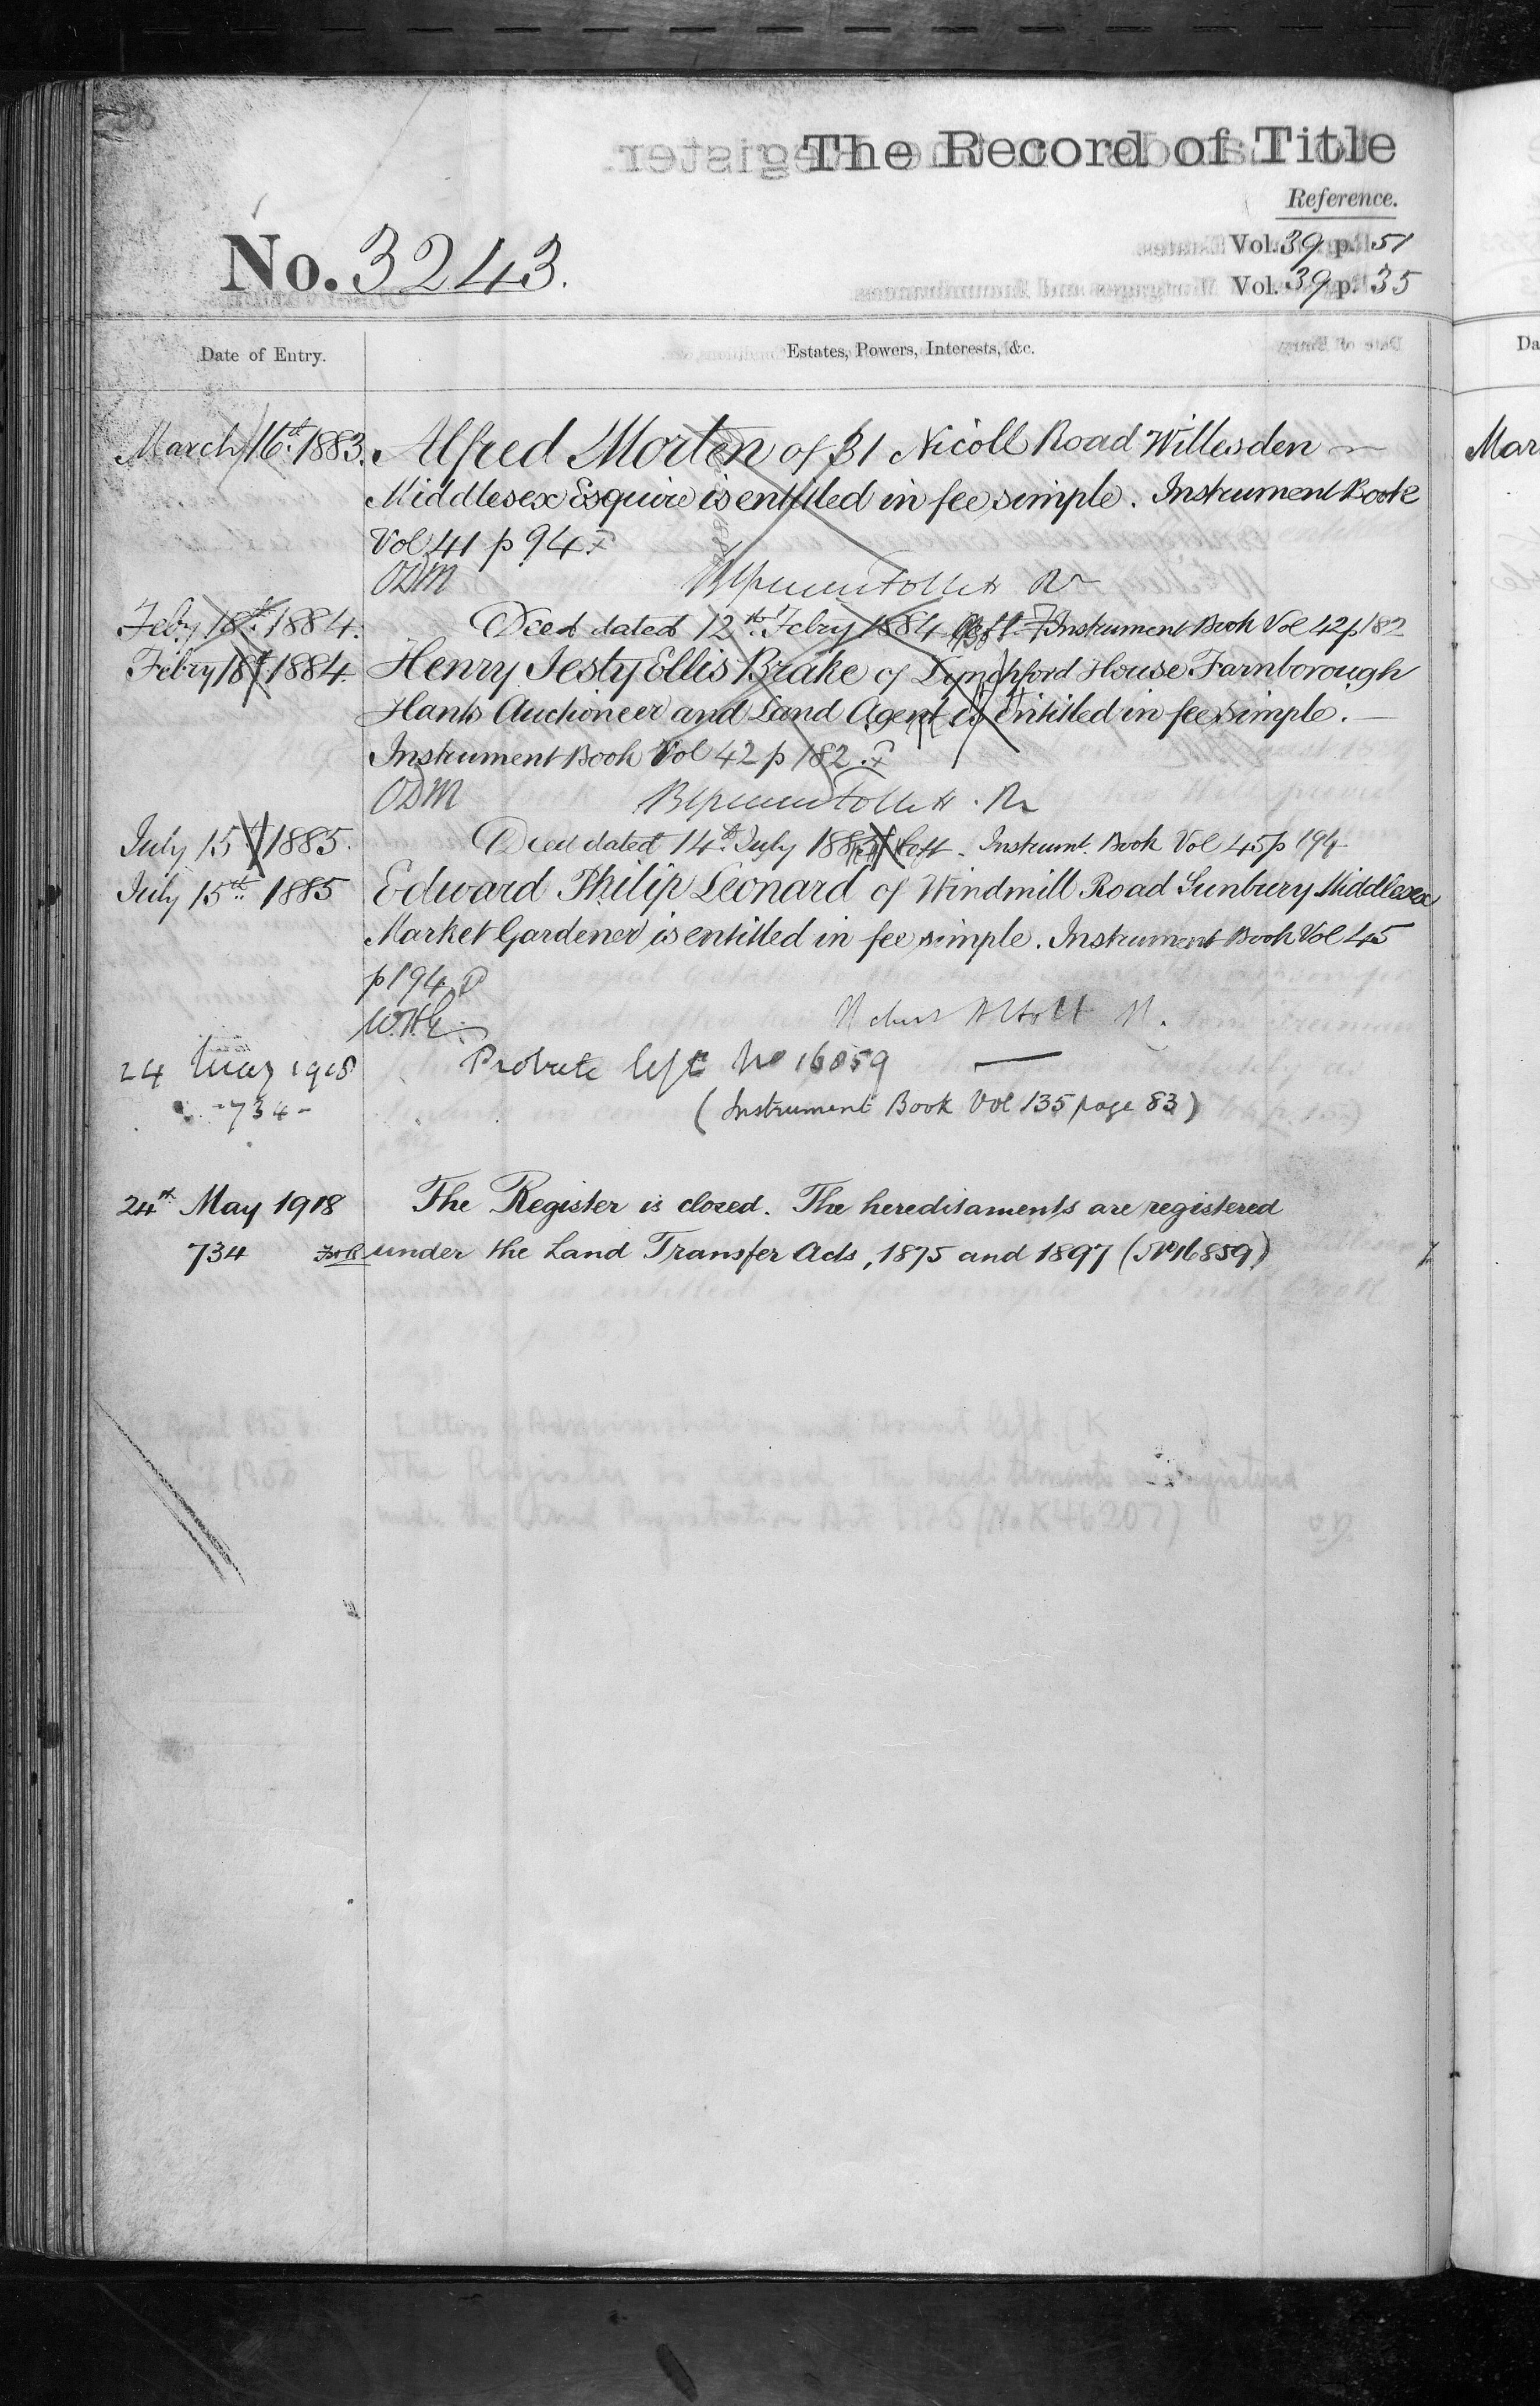 The Record of Title
Reference.
No. 3243.
Vol. 39 p. 51
Vol. 39 p. 35
Date of Entry.
Estates, Powers, Interests, &c.
March 16th 1883. Alfred Morten of 31 Nicoll Road Willesden
Middlesex Esquire is entitled in fee simple. Instrument Book
Vol 41 p 94.
ODM
Feby 18th 1884. Deed dated 12th Febry 1884 left Instrument Book Vol 42 p 182
Febry 18th 1884. Henry Jesty Ellis Brake of Lynchford House Farnborough
Hants Auctioneer and Land Agent is entitled in fee simple.
Instrument Book Vol 42 p 182.
ODM
July 15th 1885. Deed dated 14th July 1885 left. Instrumt. Book Vol 45 p 194
July 15th 1885 Edward Philip Leonard of Windmill Road Sunbury Middlesex
Market Gardener is entitled in fee simple. Instrument Book Vol 45
p 194
24 May 1918 Probate left No 16859
734 (Instrument Book Vol 135 page 83)
24th May 1918 The Register is closed. The hereditaments are registered
734 under the Land Transfer Acts, 1875 and 1897 (No 16859)
Da
Mar